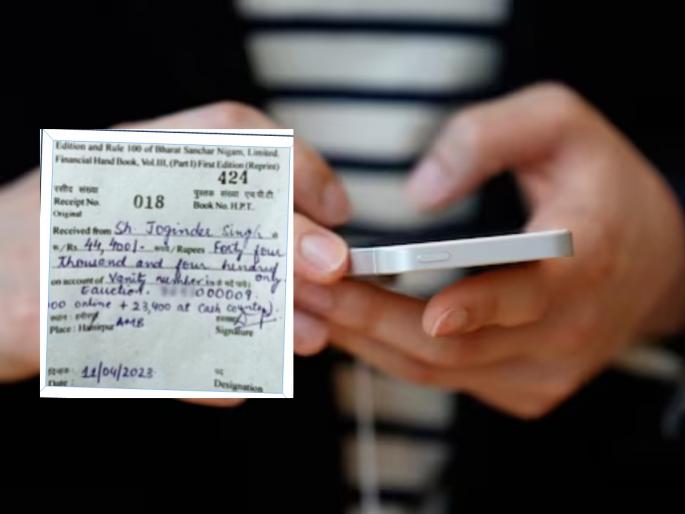 Edition and Rule 100 of Bharat Sanchar Nigam, Limited.
Financial Hand Book, Vol.III, (Part I) First Edition (Reprint)
424
रसीद संख्या पुस्तक संख्या एच.पी.टी.
Receipt No. 018 Book No. H.P.T.
Original
Received from Sh. Joginder Singh
रु/Rs. 44,400/- रूपये/Rupees Forty four
thousand and four hundred
only
on account of Vanity number in
Eauction. 000009.
00 online + 23,400 at Cash counter).
Place : Hamirpur Amb Signature
दिनांक : 11/04/2023 पद
Date : Designation